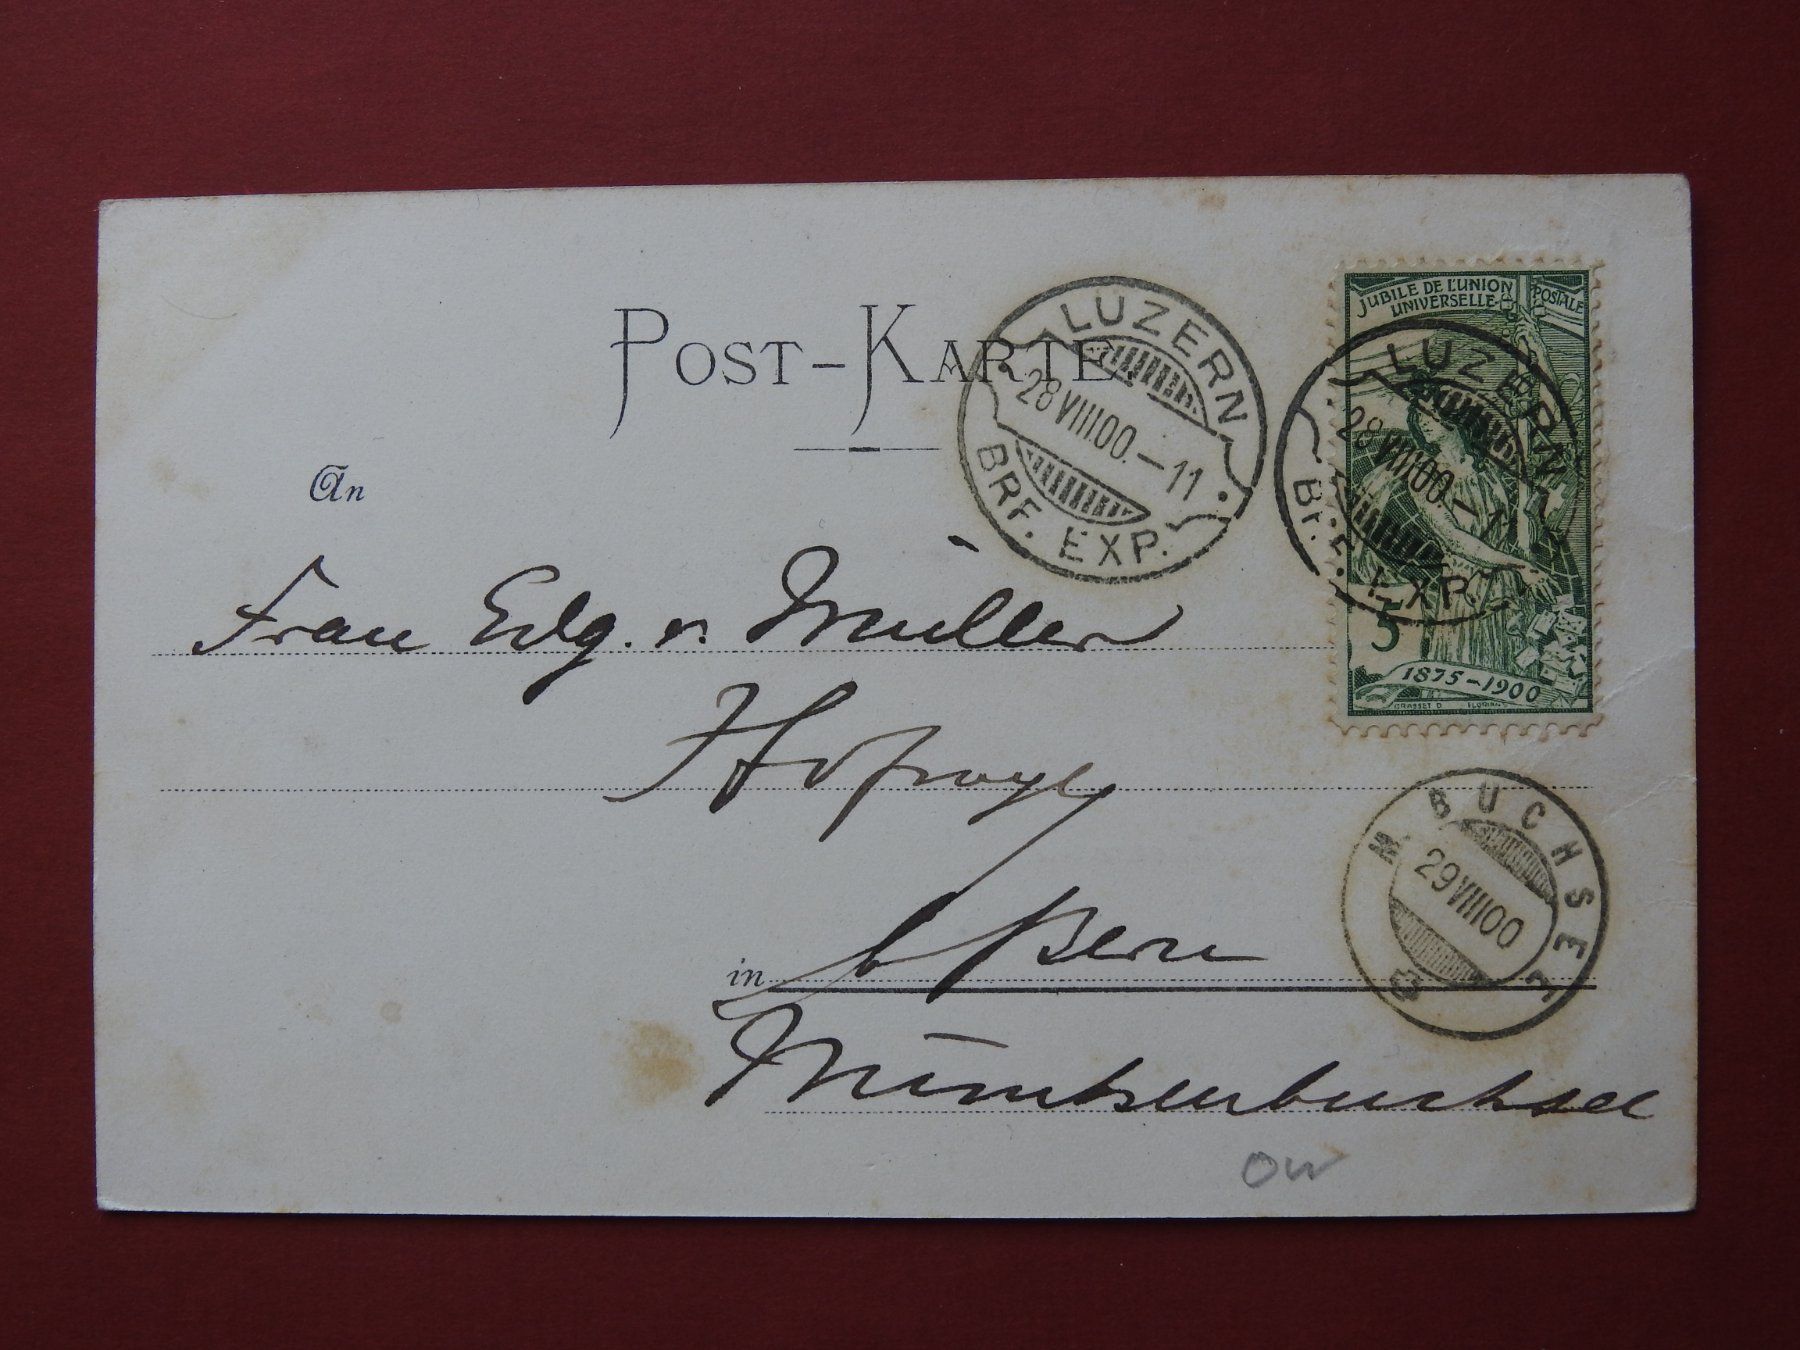 POST-KARTE.
LUZERN
28 VIII 00.–11
BRF. EXP.
JUBILE DE L'UNION POSTALE
UNIVERSELLE
LUZERN
28 VIII 00.–11
Br. EXP.
5
1875–1900
GRASSET D FLORIAN
An
Frau Edg. v. Müller
Hofwyl
M. BUCHSEE
29 VIII 00
in b/Bern
Münchenbuchsee
OW